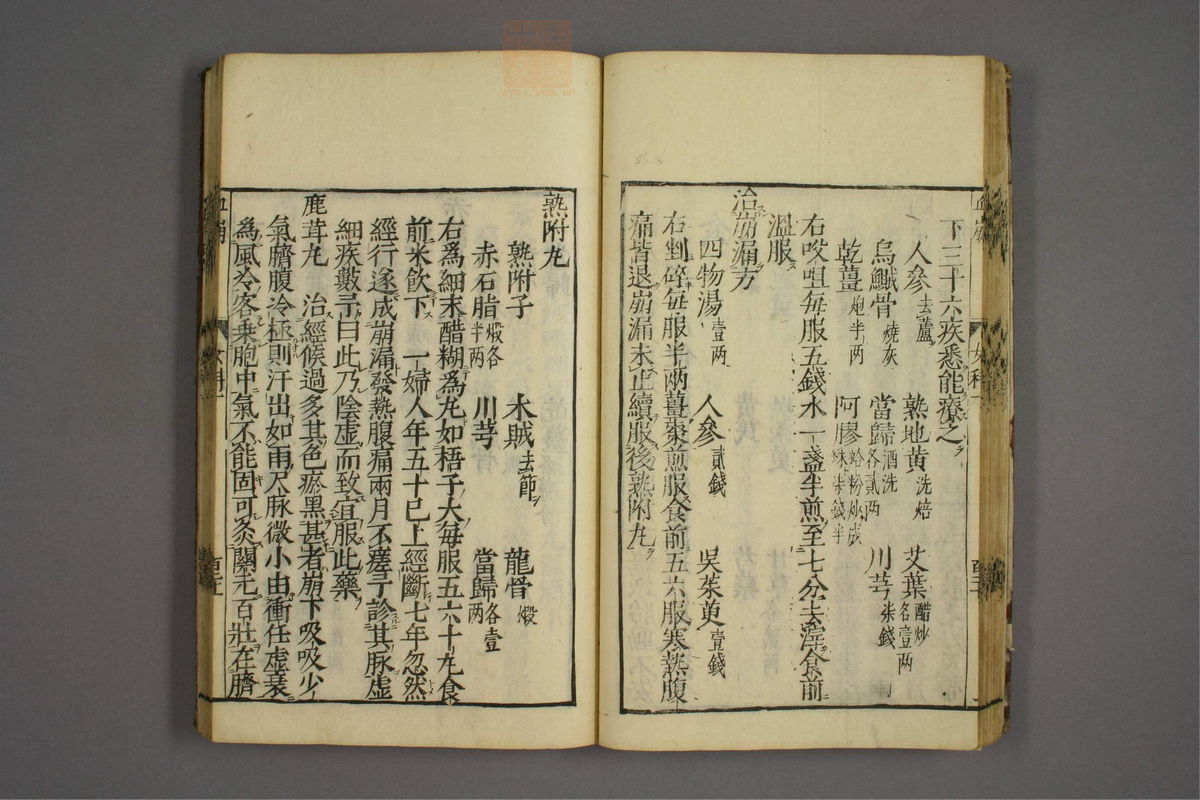 下三十六疾悉能療之
人參去蘆 熟地黄洗焙 艾葉醋炒各壹两
烏鰂骨燒灰 當歸酒洗各貳两 川芎柒錢
乾薑炮半两 阿膠蛤粉炒成珠柒錢半
右㕮咀每服五錢水一盞半煎至七分去滓食前
溫服
治崩漏方
四物湯壹两 人參貳錢 吳茱萸壹錢
右剉碎每服半两薑棗煎服食前五六服寒熱腹
痛皆退崩漏未止續服後熟附丸
熟附丸
熟附子 木賊去節 龍骨煅
赤石脂煅各半两 川芎 當歸各壹两
右爲細末醋糊為丸如梧子大每服五六十丸食
前米飲下 一婦人年五十已上經斷七年忽然
經行遂成崩漏發熱腹痛兩月不瘥予診其脉虚
細疾數予曰此乃陰虚而致宜服此藥
鹿茸丸 治經候過多其色瘀黑甚者崩下吸吸少
氣臍腹冷極則汗出如雨尺脉微小由衝任虚衰
為風冷客乗胞中氣不能固可灸關元百壯在臍